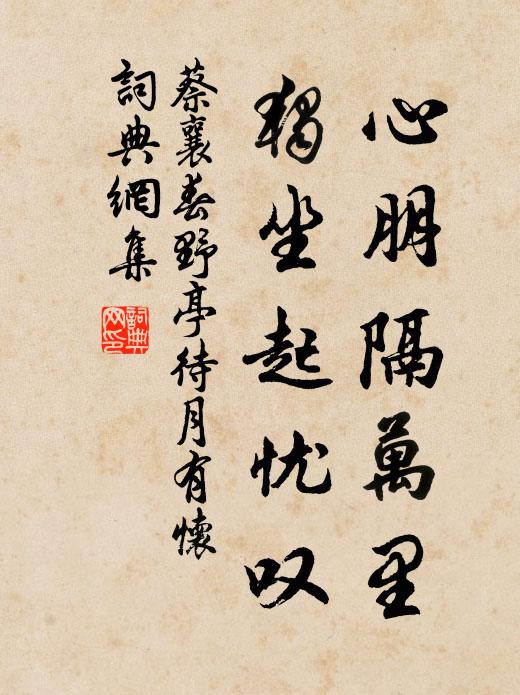 心朋隔萬里
獨坐起忧叹
蔡襄春野亭待月有懷
詞典網集
詞典網印